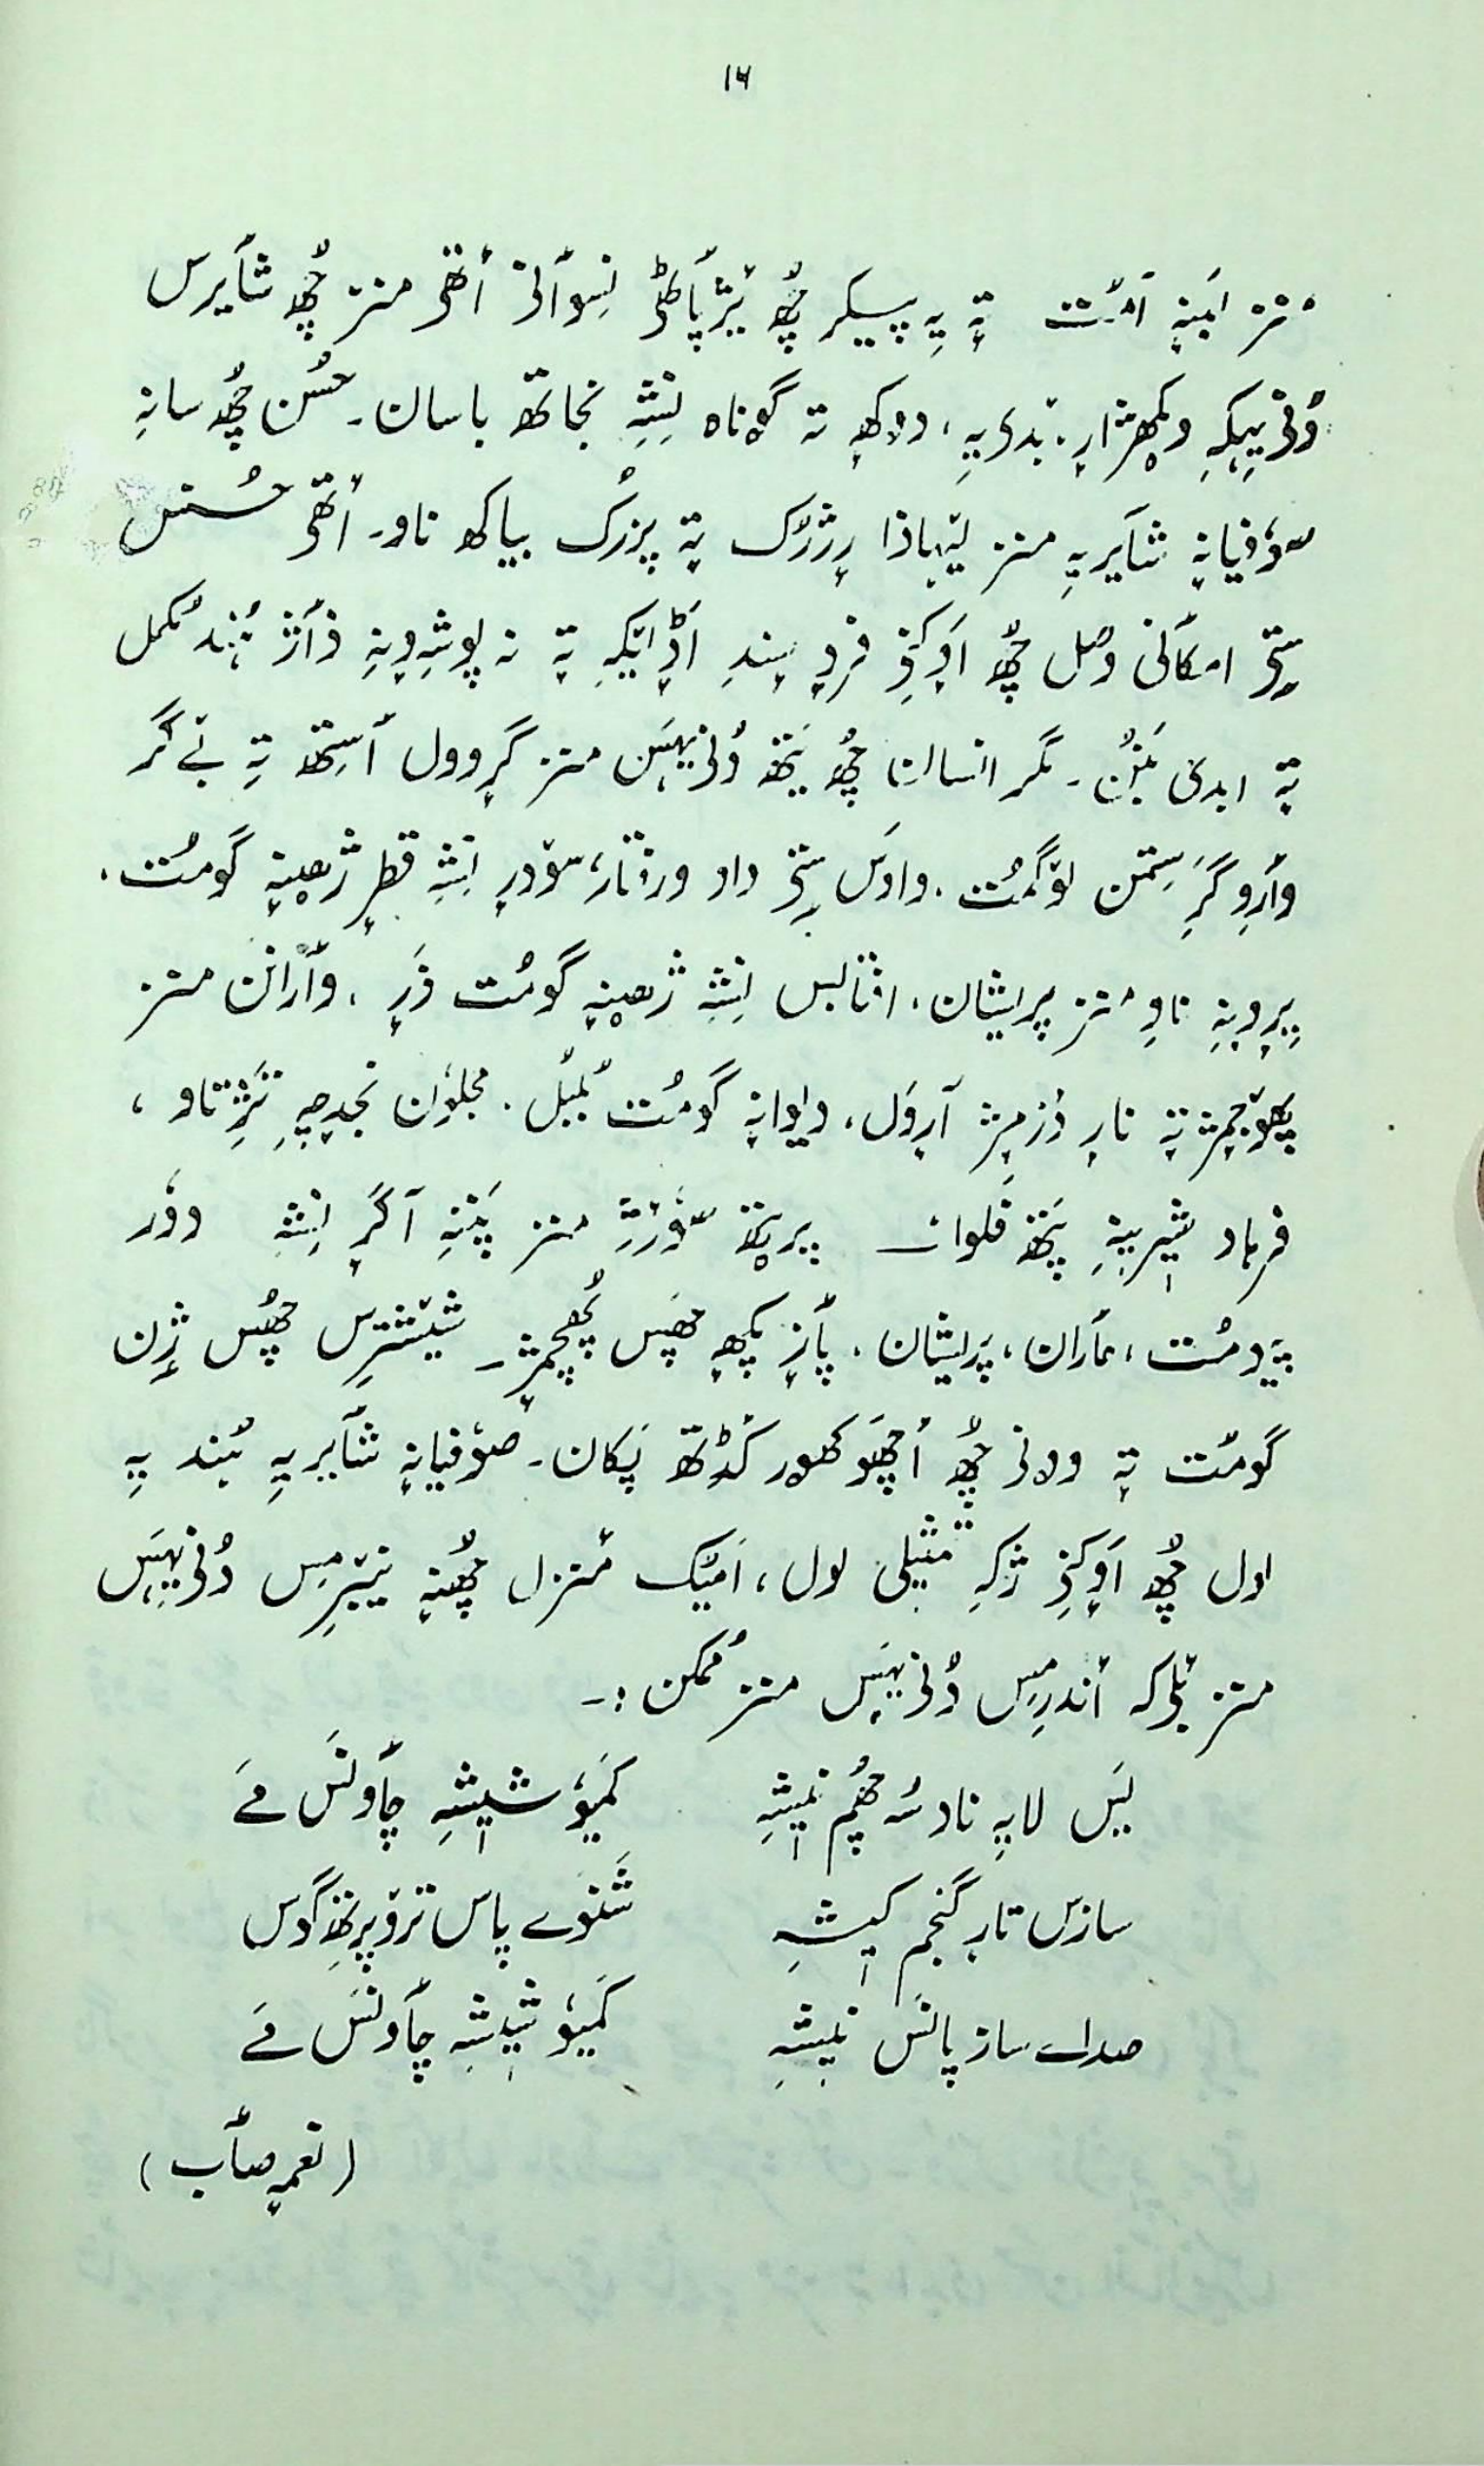 ۱۶
منز اَننہٕ آمُت تہٕ یہِ پیکر چھُ بێترٛپٲٹھؠ نِسوٲنی اَتھؠ منز چھُ شٲیرس
دُنیٖیہِکہِ وکھرٛارِ، بدی یہِ، دوکھہٕ تہٕ گوناہ نِشہِ نجاتھ باسان۔ حُسن چھُ سانہِ
صوٗفیانہٕ شٲیریہِ منز لِہٰذا رژرُک تہٕ پزرُک بیاکھ ناو۔ اَتھؠ حُسنس
سٕتؠ امکٲنی وصل چھُ اَوٕکِنؠ فردٕ سٕندِ اَڈٕلیکہِ تہٕ نہ پوشہِ وٕنہِ ذٲژ ہُند مُکمل
تہٕ ابدی بَنُن۔ مگر انسان چھُ یَتھ دُنیٖہَس منز گرٕوول ٲسِتھ تہِ بے گر
وٲرِوگرِ سِتمن لۆگمُت۔ واوَس سٕتؠ داو ورفتار، سۆدرٕ نِشہِ قطرٕ ژھینہٕ گومُت۔
پیرٕونہِ ناوِ منز پریشان، افتابس نِشہِ ژھینہٕ گومُت ذَرٕ، وٲرانن منز
پھۆجمژ تہٕ نارٕ دٔزمٕژ آرٕوَل، دیوانہٕ گومُت بُلبُل۔ مجنوٗن نجدچہِ تژرِ تاو،
فرہاد شیٖرینہِ پَتھ قلوان پریتھ صوٗرتہِ منز پَننہِ آگرٕ نِشہِ دوٗر
پیۆومُت، ماران، پریشان۔ پٲزِ پکھہٕ چھَس پھُچمژٕ۔ شێشترٕس چھُس ژرٕن
گومُت تہٕ وۄنی چھُ اَچھَو کھور کٔڈتھ پَکان۔ صوٗفیانہٕ شٲیریہِ ہُند یہِ
لول چھُ اَوٕکِنؠ ژکہِ تمثیلی لول، اَمیُک منزل چھُنہٕ نیبرِمِس دُنیٖہَس
منز بلکہ اَندرِمِس دُنیٖہَس منز مُمکن :۔
یَس لایہِ ناد سُہ چھُم نیٖشہِ کَمیوٗ شیٖشہِ چٲونَس مَے
سازس تار گنجم کیٖشہِ شَنوے پاس ترٛۆپرِتھ گوس
صداے ساز پانس نیٖشہِ کَمیوٗ شیٖشہِ چٲونَس مَے
(نعمہٕ صٲب)